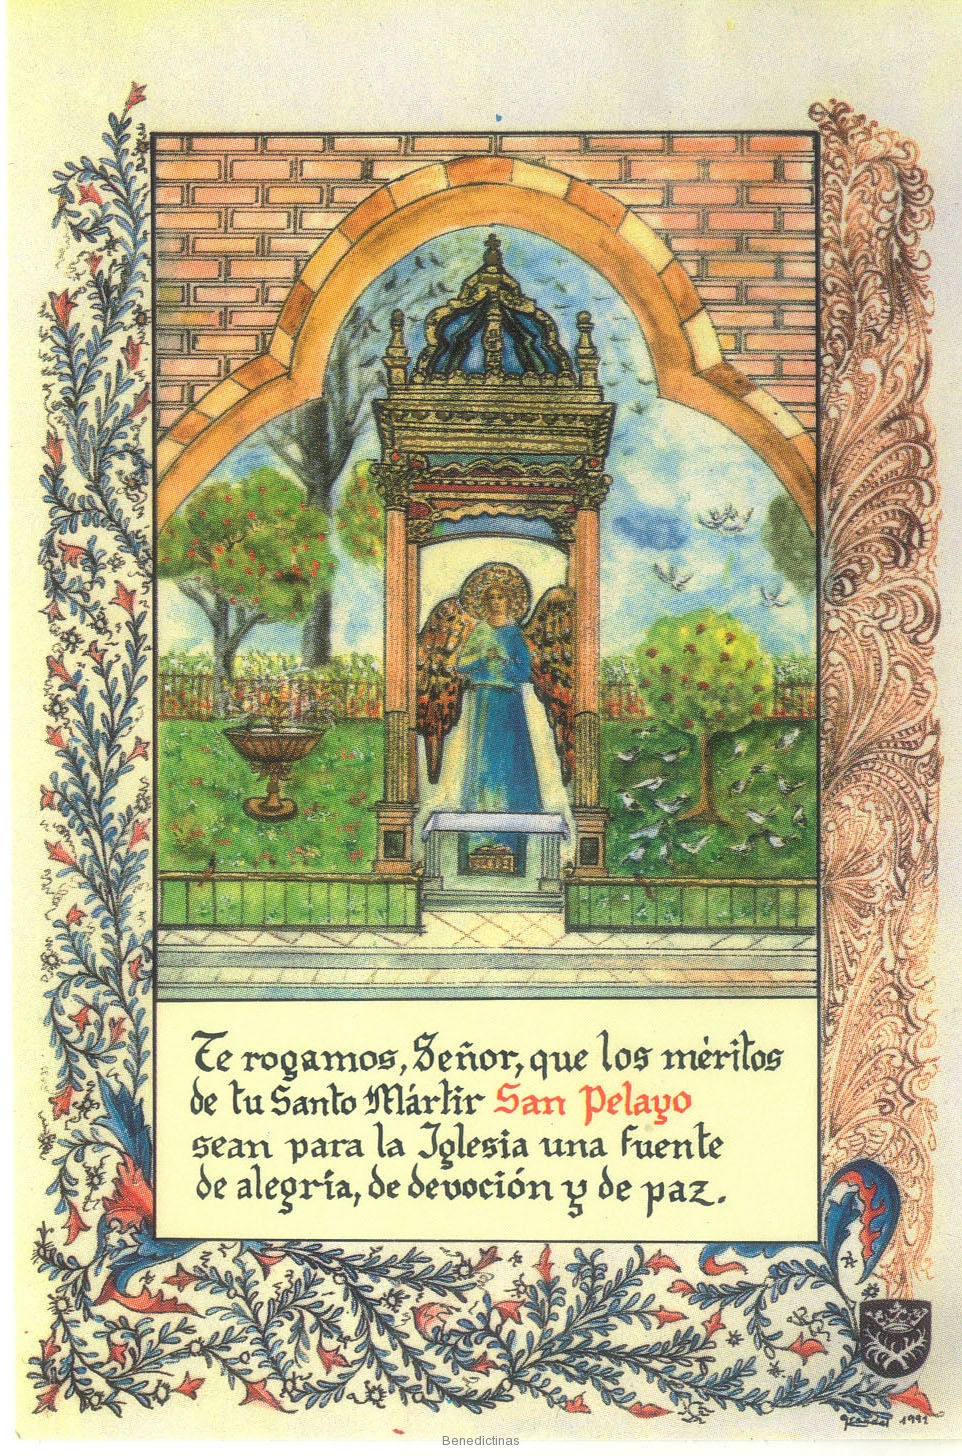 Te rogamos, Señor, que los méritos
de tu Santo Mártir San Pelayo
sean para la Iglesia una fuente
de alegría, de devoción y de paz.
1991
Benedictinas